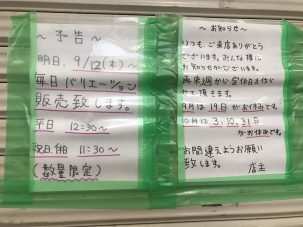 ～予告～
明日、9/12(木)～
毎日バリエーション
販売致します。
平日 12:30～
祝日、休日 11:30～
(数量限定)
～お知らせ～
いつもご来店ありがとう
ございます。みんな様に
お知らせがございます。
再来週から定休日を作ら
せて頂きます。
9月は19日がお休みです。
10月は3.10.31日
がお休みです。
お間違えようお願い
致します。 店主